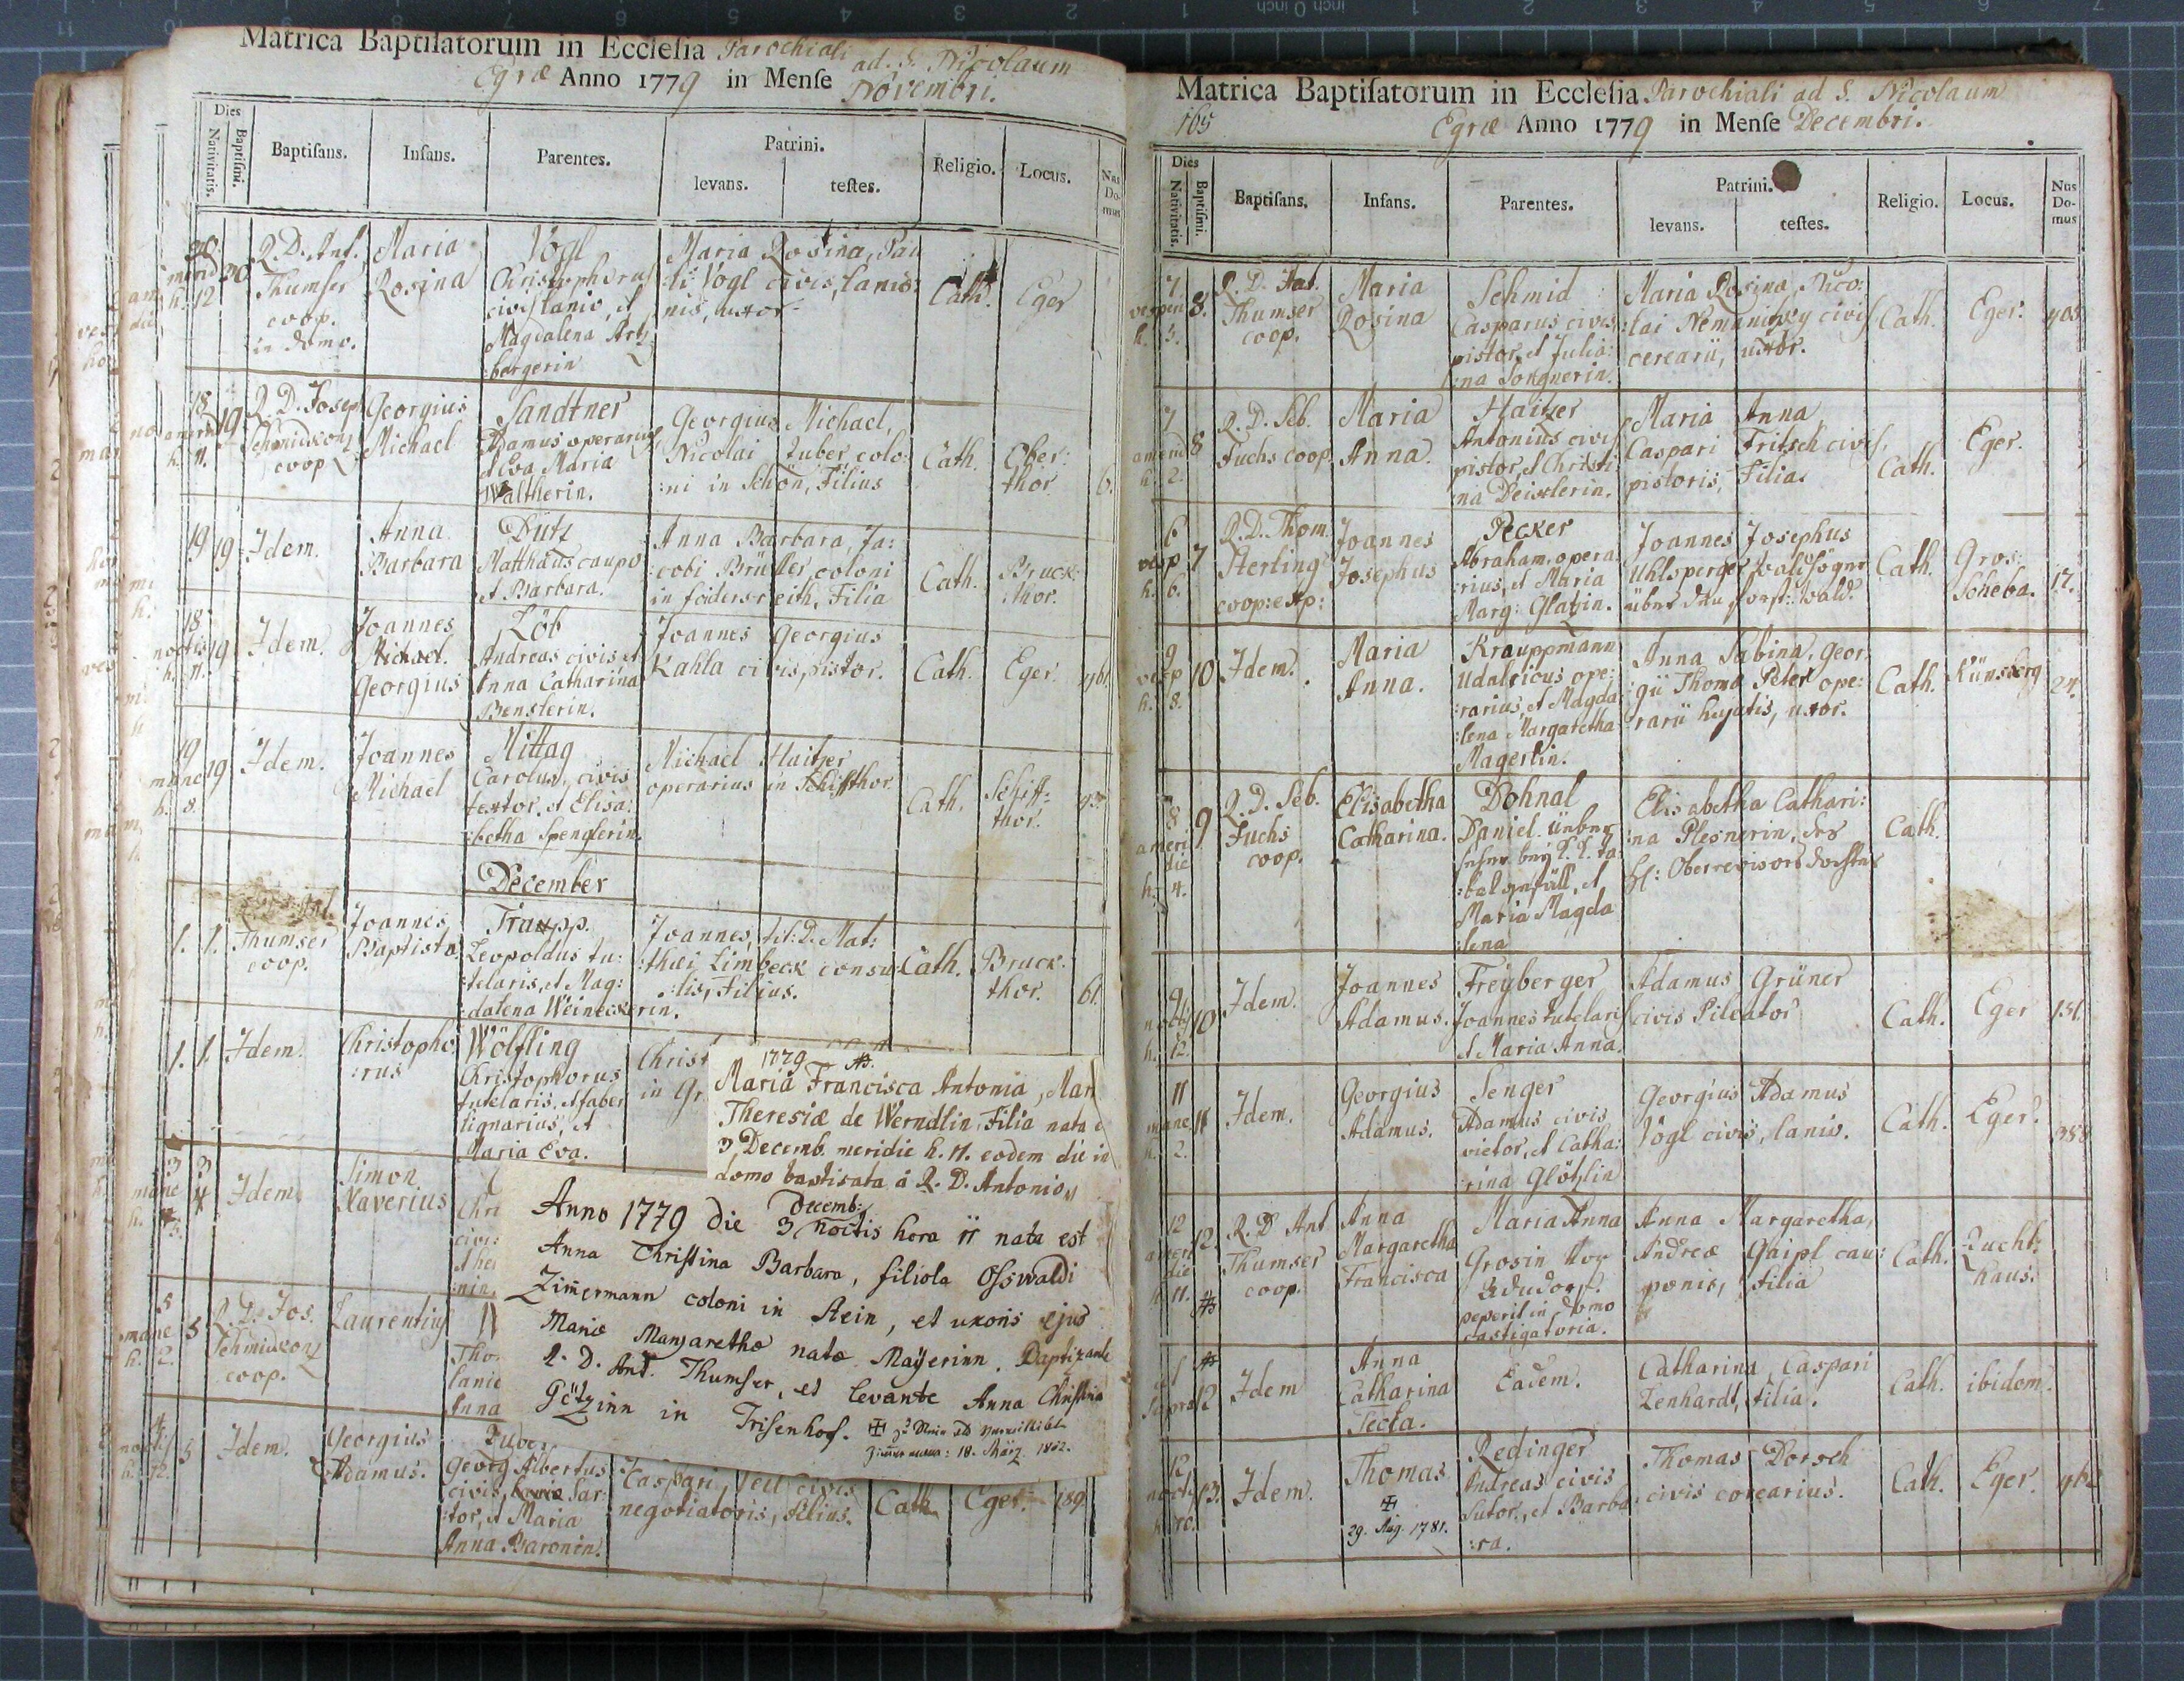 Matrica Baptisatorum in Ecclesia Parochiali ad. S. Nicolaum
Egræ Anno 1779 in Mense Novembri.
Dies
Nativitatis.
Baptismi.
Baptisans.
Infans.
Parentes.
Patrini.
levans.
testes.
Religio.
Locus.
Nus Domus
20
R. D. Ant.
Thumser
coop.
in domo.
Maria
Rosina
Vogl
Christophorus
civis lanio, et
Magdalena Artz
:bergerin
Maria Rosina, Pau
:li Vogl civis, lanio:
nis, uxor
Cath.
Eger
18
h. 11.
19
R. D. Joseph
Schmidkontz
coop
Georgius
Michael
Sandtner
Adamus operarius
et Eva Maria
Waltherin.
Georgius Michael,
Nicolai Zuber colo:
:ni in Schön, Filius
Cath.
Ober:
thor
6.
19
19
Idem.
Anna
Barbara
Dütz
Matthäus caupo
et Barbara.
Anna Barbara, Ja:
:cobi Brütler, coloni
in födersreith, Filia
Cath.
Bruck:
thor.
18
noctis
h. 11.
19
Idem.
Joannes
Michael.
Georgius
Löb
Andreas civis et
Anna Catharina
Benslerin.
Joannes Georgius
Kahla civis, pistor.
Cath.
Eger.
19
mane
h. 8.
19
Idem.
Joannes
Michael
Mittag
Carolus, civis
textor, et Elisa:
:betha Spenglerin.
Michael Haitzer
operarius in Schiffthor
Cath.
Schiff:
thor.
December
1.
1.
Thumser
coop.
Joannes
Baptista
Traupp.
Leopoldus tu:
:telaris, et Mag:
:dalena Weineckerin.
Joannes, tit: D. Mat:
:thæi Limbeck consu
:lis, Filius.
Cath.
Bruck:
thor.
61.
1.
1.
Idem.
Christopho:
:rus
Wölfling
Christophorus
tutelaris, et faber
lignarius, et
Maria Eva.
Christ
in Gr.
3
mane
h.
3
4
Idem.
Simon
Xaverius
Chri
civi:
et he
:nin.
5
mane
h. 2.
5
R. D. Jos.
Schmidkontz
coop.
Laurentius
Tho
lanio
Anna
4
noctis
h. 12.
5
Idem.
Georgius
Adamus.
Georg Albertus
civis, Sar:
:tor, et Maria
Anna Baronin.
Caspari, civis
negotiatoris, filius.
Cath
Eger.
189
1779
Maria Francisca Antonia, Mar
Theresiæ de Werndlin, Filia nata
3 Decemb. meridie h. 11. eodem die in
domo baptisata á R. D. Antonio
Anno 1779 die 3 Decemb: noctis hora 11 nata est
Anna Christina Barbara, filiola Osswaldi
Zimermann coloni in Stein, et uxoris ejus
Mariæ Margarethæ natæ Mayerinn. Baptizante
R. D. Ant. Thumser, et levante Anna Christina
Götzinn in Trisenhof.
: 18. März 1802.
Matrica Baptisatorum in Ecclesia Parochiali ad S. Nicolaum
165
Egræ Anno 1779 in Mense Decembri.
Dies
Nativitatis.
Baptismi.
Baptisans.
Infans.
Parentes.
Patrini.
levans.
testes.
Religio.
Locus.
Nus Domus
7
vesperi
h. 5.
8.
R. D. Ant.
Thumser
coop.
Maria
Rosina
Schmid
Casparus civis
pistor, et Julia:
:na Sorgnerin.
Maria Rosina, Nico:
:lai Nemanitzky civis
cerearii, uxor.
Cath.
Eger:
7
h. 2.
8
R. D. Seb.
Fuchs coop.
Maria
Anna.
Haitzer
Antonius civis
pistor, et Christi
:na Deistlerin.
Maria Anna
Caspari Fritsch civis,
pistoris, Filia.
Cath.
Eger.
6
vesp
h. 6.
7
R. D. Thom.
Sterling
coop: exp:
Joannes
Josephus
Pecker
Abraham, opera:
:rius, et Maria
Marg: Glatzin.
Joannes Josephus
Uhlsperger
Cath.
Gros:
Scheba.
17.
9
vesp
h. 8.
10
Idem.
Maria
Anna.
Krauppmann
Udalricus ope:
:rarius, et Magda
:lena Margaretha
Magerlin.
Anna Sabina, Geor:
:gii Thomæ Peter ope:
:rarii hujatis, uxor.
Cath.
Künsberg
24.
8
ameri
die
h. 4.
9
R. D. Seb.
Fuchs
coop.
Elisabetha
Catharina.
Dohnal
Daniel
Maria Magda
:lena
Elisabetha Cathari:
:na Plesnerin, des
H: Oberrevisors dochter
Cath.
9
noctis
h. 12.
10
Idem.
Joannes
Adamus.
Freyberger
Joannes tutelaris
et Maria Anna.
Adamus Grüner
civis Pileator
Cath.
Eger
151.
11
mane
h. 2.
11
Idem.
Georgius
Adamus.
Senger
Adamus civis
vietor, et Catha:
:rina Glötzlin
Georgius Adamus
Vögl civis, lanio.
Cath.
Eger.
388
12
ameri
die
h. 11.
12.
R. D Ant
Thumser
coop.
Anna
Margaretha
Francisca
Maria Anna
Grosin
peperit in domo
castigatoria.
Anna Margaretha,
Andreæ Gaipl cau:
:ponis, filia
Cath.
Zucht:
haus.
ut
supra
12
Idem
Anna
Catharina
Tecla.
Eadem.
Catharina Caspari
Lenhardt, filia.
Cath.
ibidem.
12
noctis
h. 10.
13.
Idem.
Thomas
29. Aug. 1781.
Redinger
Andreas civis
Sutor, et Barba
:ra.
Thomas Dorsch
civis corearius.
Cath.
Eger.